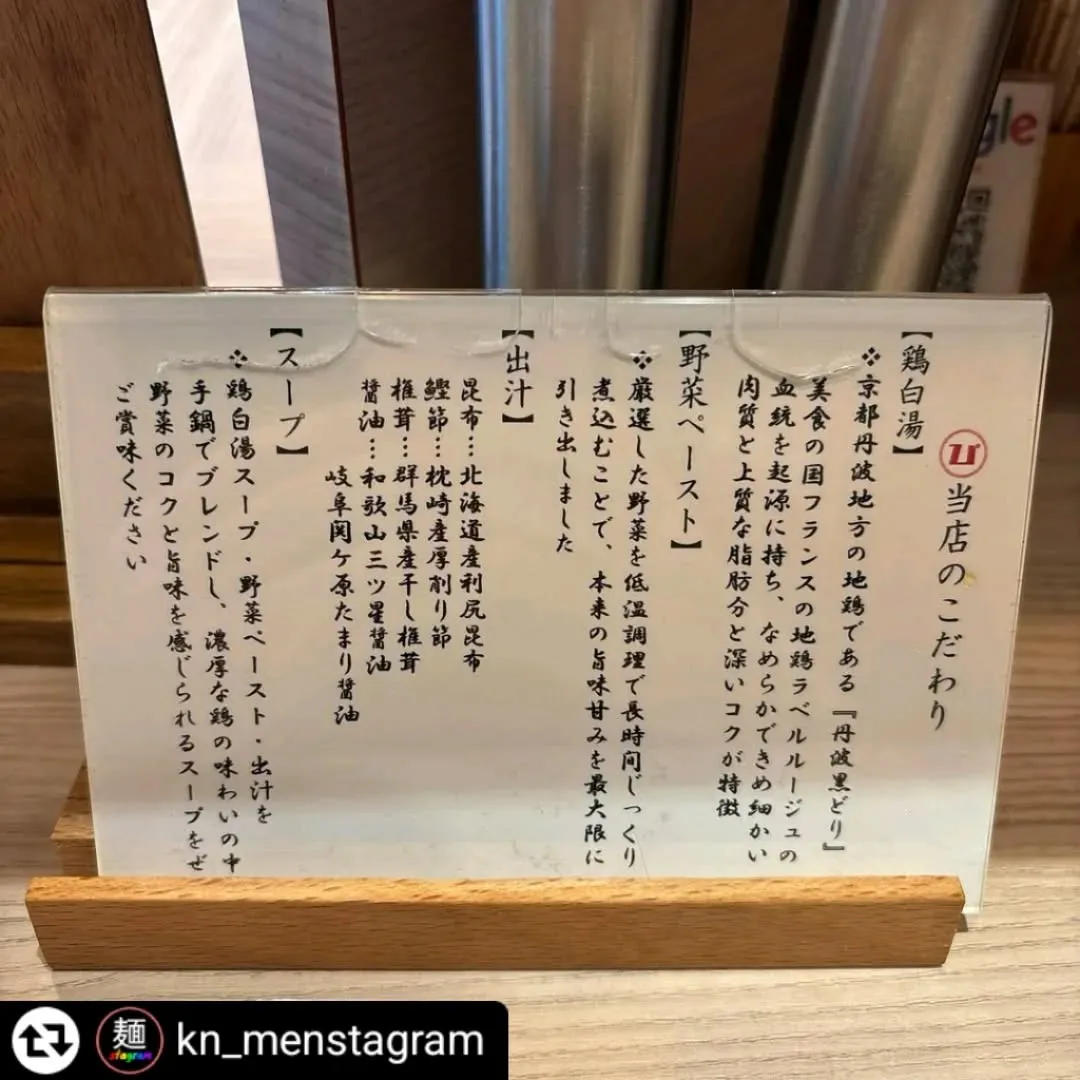 当店のこだわり
【鶏白湯】
❖京都丹波地方の地鶏である『丹波黒どり』
美食の国フランスの地鶏ラベルルージュの
血統を起源に持ち、なめらかできめ細かい
肉質と上質な脂肪分と深いコクが特徴
【野菜ペースト】
❖厳選した野菜を低温調理で長時間じっくり
煮込むことで、本来の旨味甘みを最大限に
引き出しました
【出汁】
昆布…北海道産利尻昆布
鰹節…枕崎産厚削り節
椎茸…群馬県産干し椎茸
醤油…和歌山三ツ星醤油
岐阜関ケ原たまり醤油
【スープ】
❖鶏白湯スープ・野菜ペースト・出汁を
手鍋でブレンドし、濃厚な鶏の味わいの中
野菜のコクと旨味を感じられるスープをぜ
ご賞味ください
gle
麺
stagram
kn_menstagram